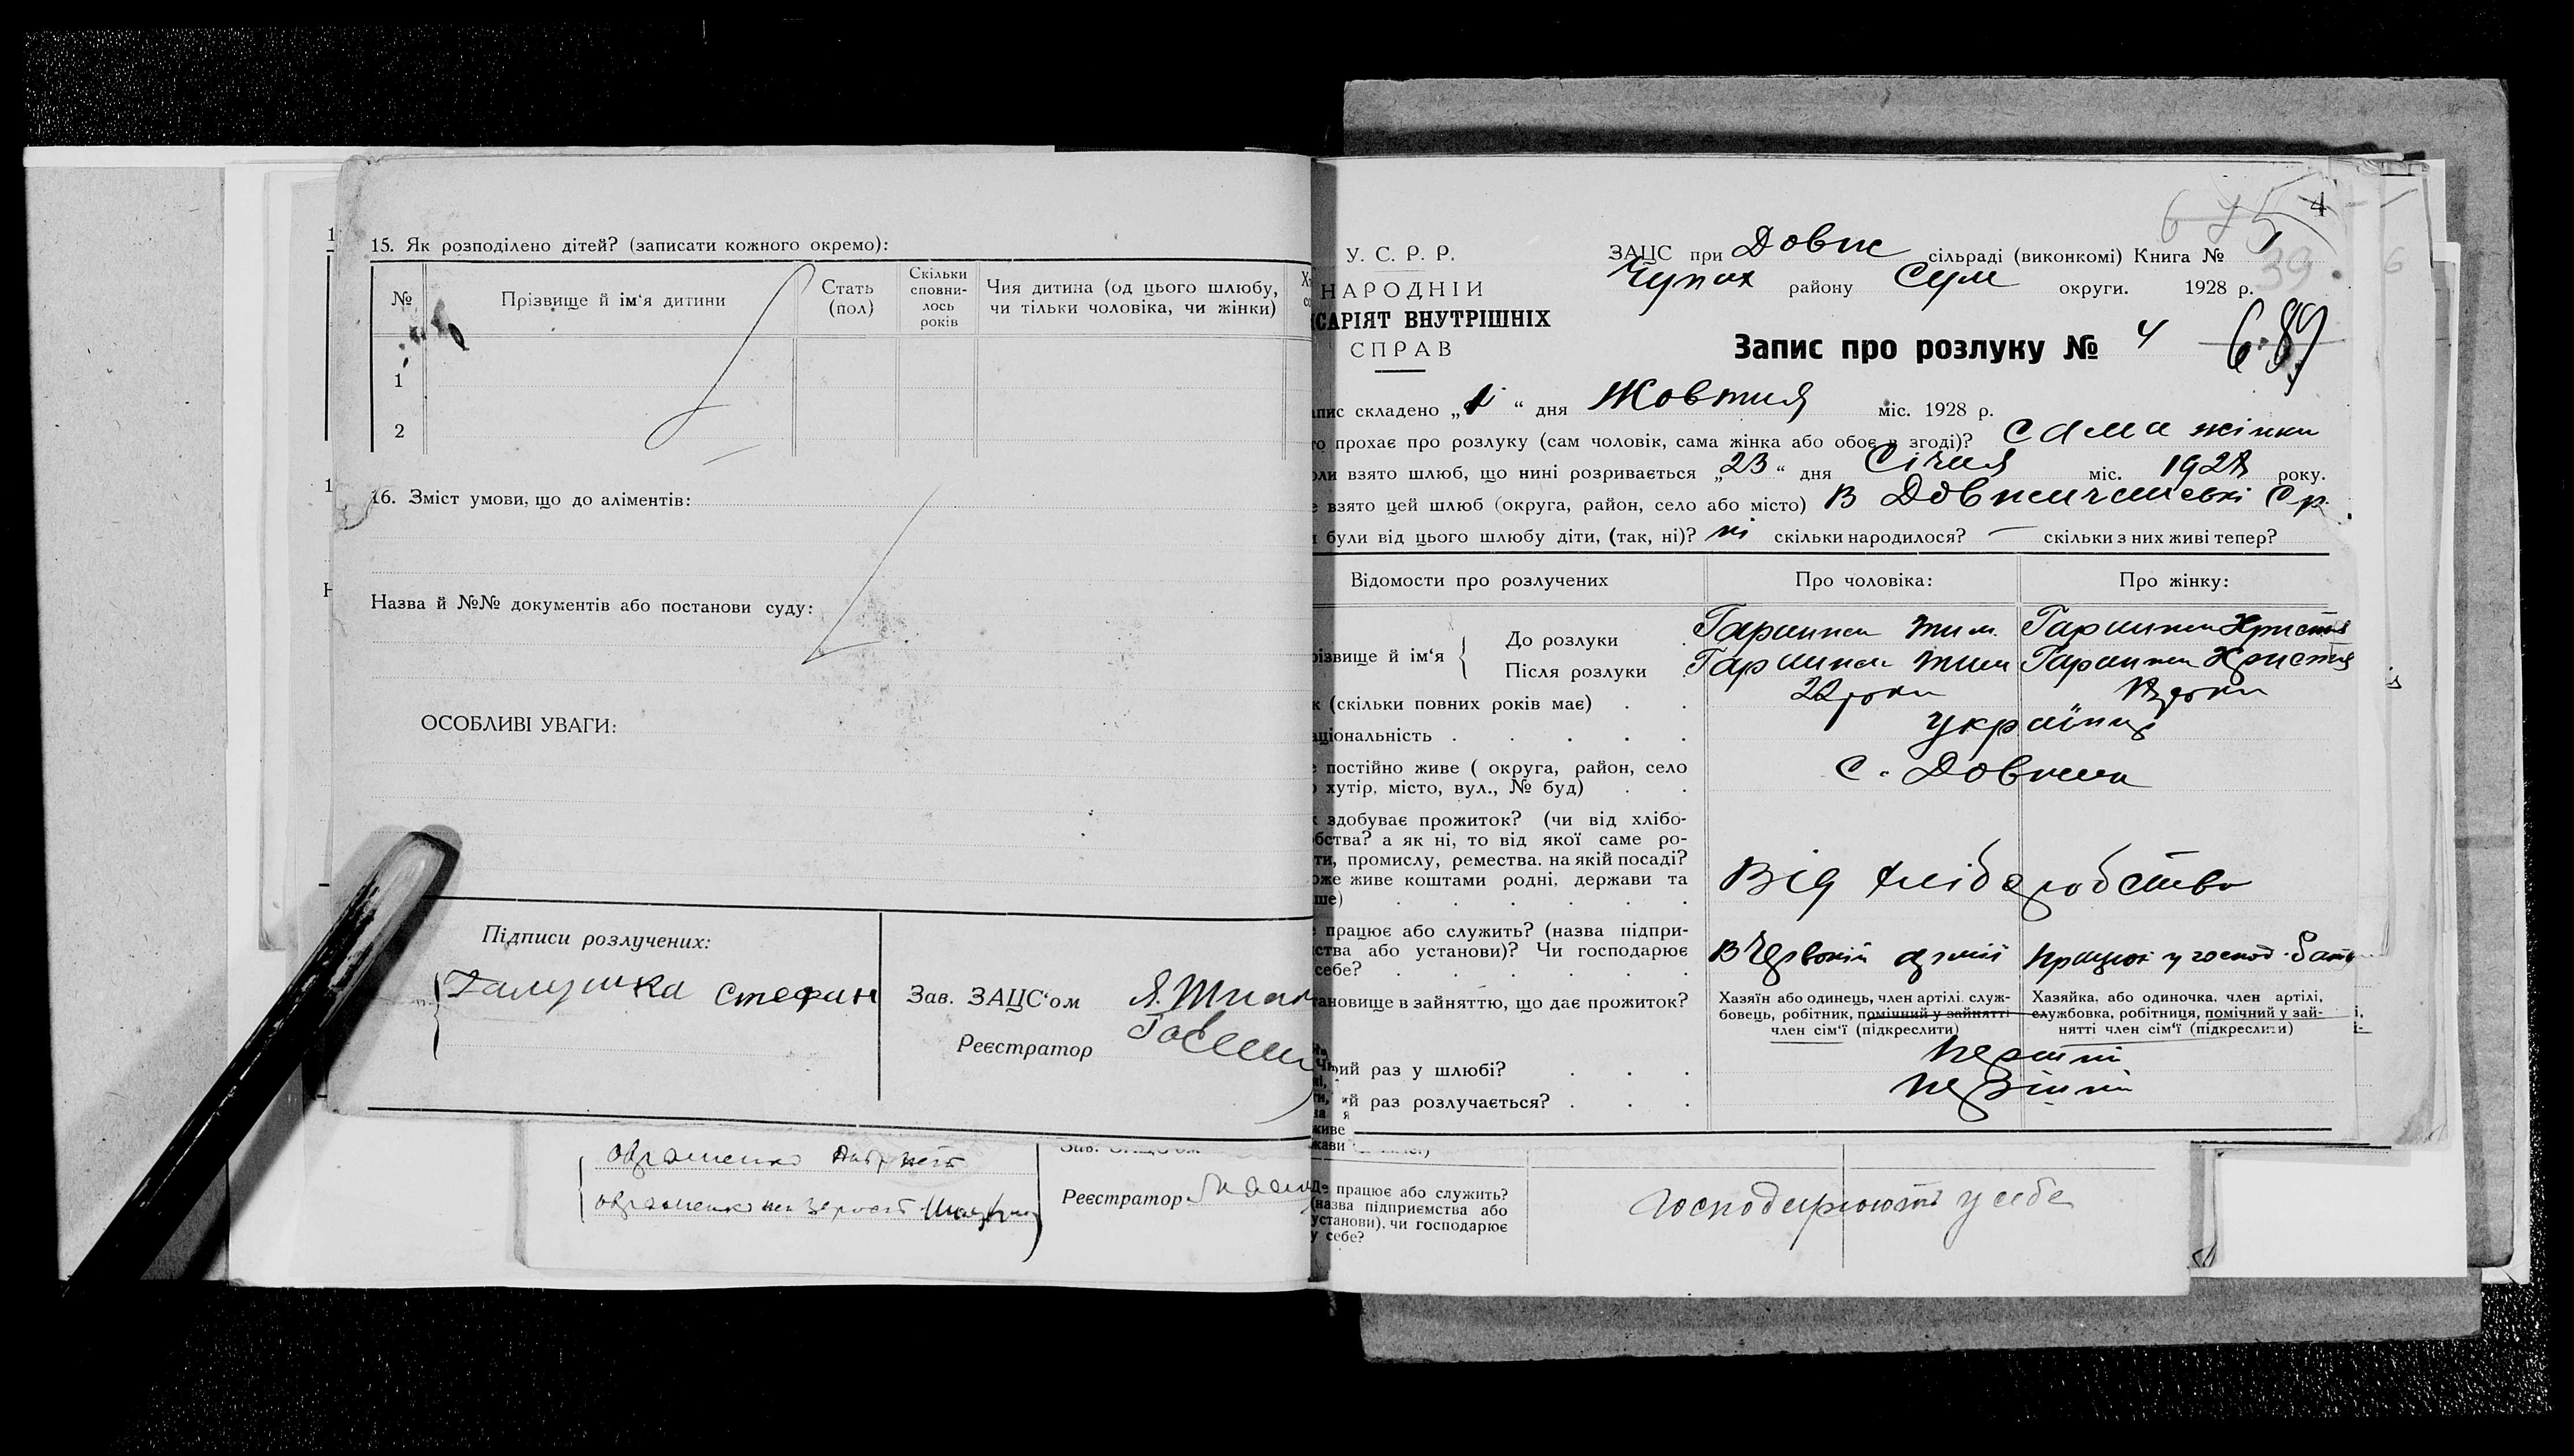 15. Як розподілено дітей? (записати кожного окремо):
№ Прізвище й ім'я дитини Стать (пол) Скільки сповни-лось років Чия дитина (од цього шлюбу, чи тільки чоловіка, чи жінки)
1
2
16. Зміст умови, що до аліментів:
Назва й №№ документів або постанови суду:
ОСОБЛИВІ УВАГИ:
Підписи розлучених:
Галушка Стефан
Зав. ЗАЦС'ом
Реєстратор
Реєстратор
У. С. Р. Р.
НАРОДНІЙ
САРІЯТ ВНУТРІШНІХ
СПРАВ
4
ЗАЦС при Довж сільраді (виконкомі) Книга № 1
39
Чупах району Сум округи. 1928 р.
Запис про розлуку № 4
689
апис складено „1“ дня Жовтня міс. 1928 р.
го прохає про розлуку (сам чоловік, сама жінка або обоє в згоді)? Сама жінка
оли взято шлюб, що нині розривається „23“ дня Січня міс. 1928 року.
е взято цей шлюб (округа, район, село або місто) В
и були від цього шлюбу діти, (так, ні)? ні скільки народилося? — скільки з них живі тепер?
Відомости про розлучених Про чоловіка: Про жінку:
різвище й ім'я
До розлуки Тим. Христя
Після розлуки Тим Христя
к (скільки повних років має) 22 роки роки
аціональність українці
е постійно живе ( округа, район, село
о хутір, місто, вул., № буд) с.
к здобуває прожиток? (чи від хлібо-
бства? а як ні, то від якої саме ро-
ти, промислу, ремества. на якій посаді?
оже живе коштами родні, держави та
ше) Від хліборобства
е працює або служить? (назва підпри-
ства або установи)? Чи господарює
себе? В Червоній армії працює у господ. бать
тановище в зайняттю, що дає прожиток?
Хазяїн або одинець, член артілі, служ-
бовець, робітник, помічний у зайнятті
член сім'ї (підкреслити)
Хазяйка, або одиночка, член артілі,
службовка, робітниця, помічний у зай-
нятті член сім'ї (підкреслити)
рий раз у шлюбі? перший
ий раз розлучається? перший
живе
жави
Де працює або служить?
(назва підприємства або
установи), чи господарює
у себе?
Господарюють у себе